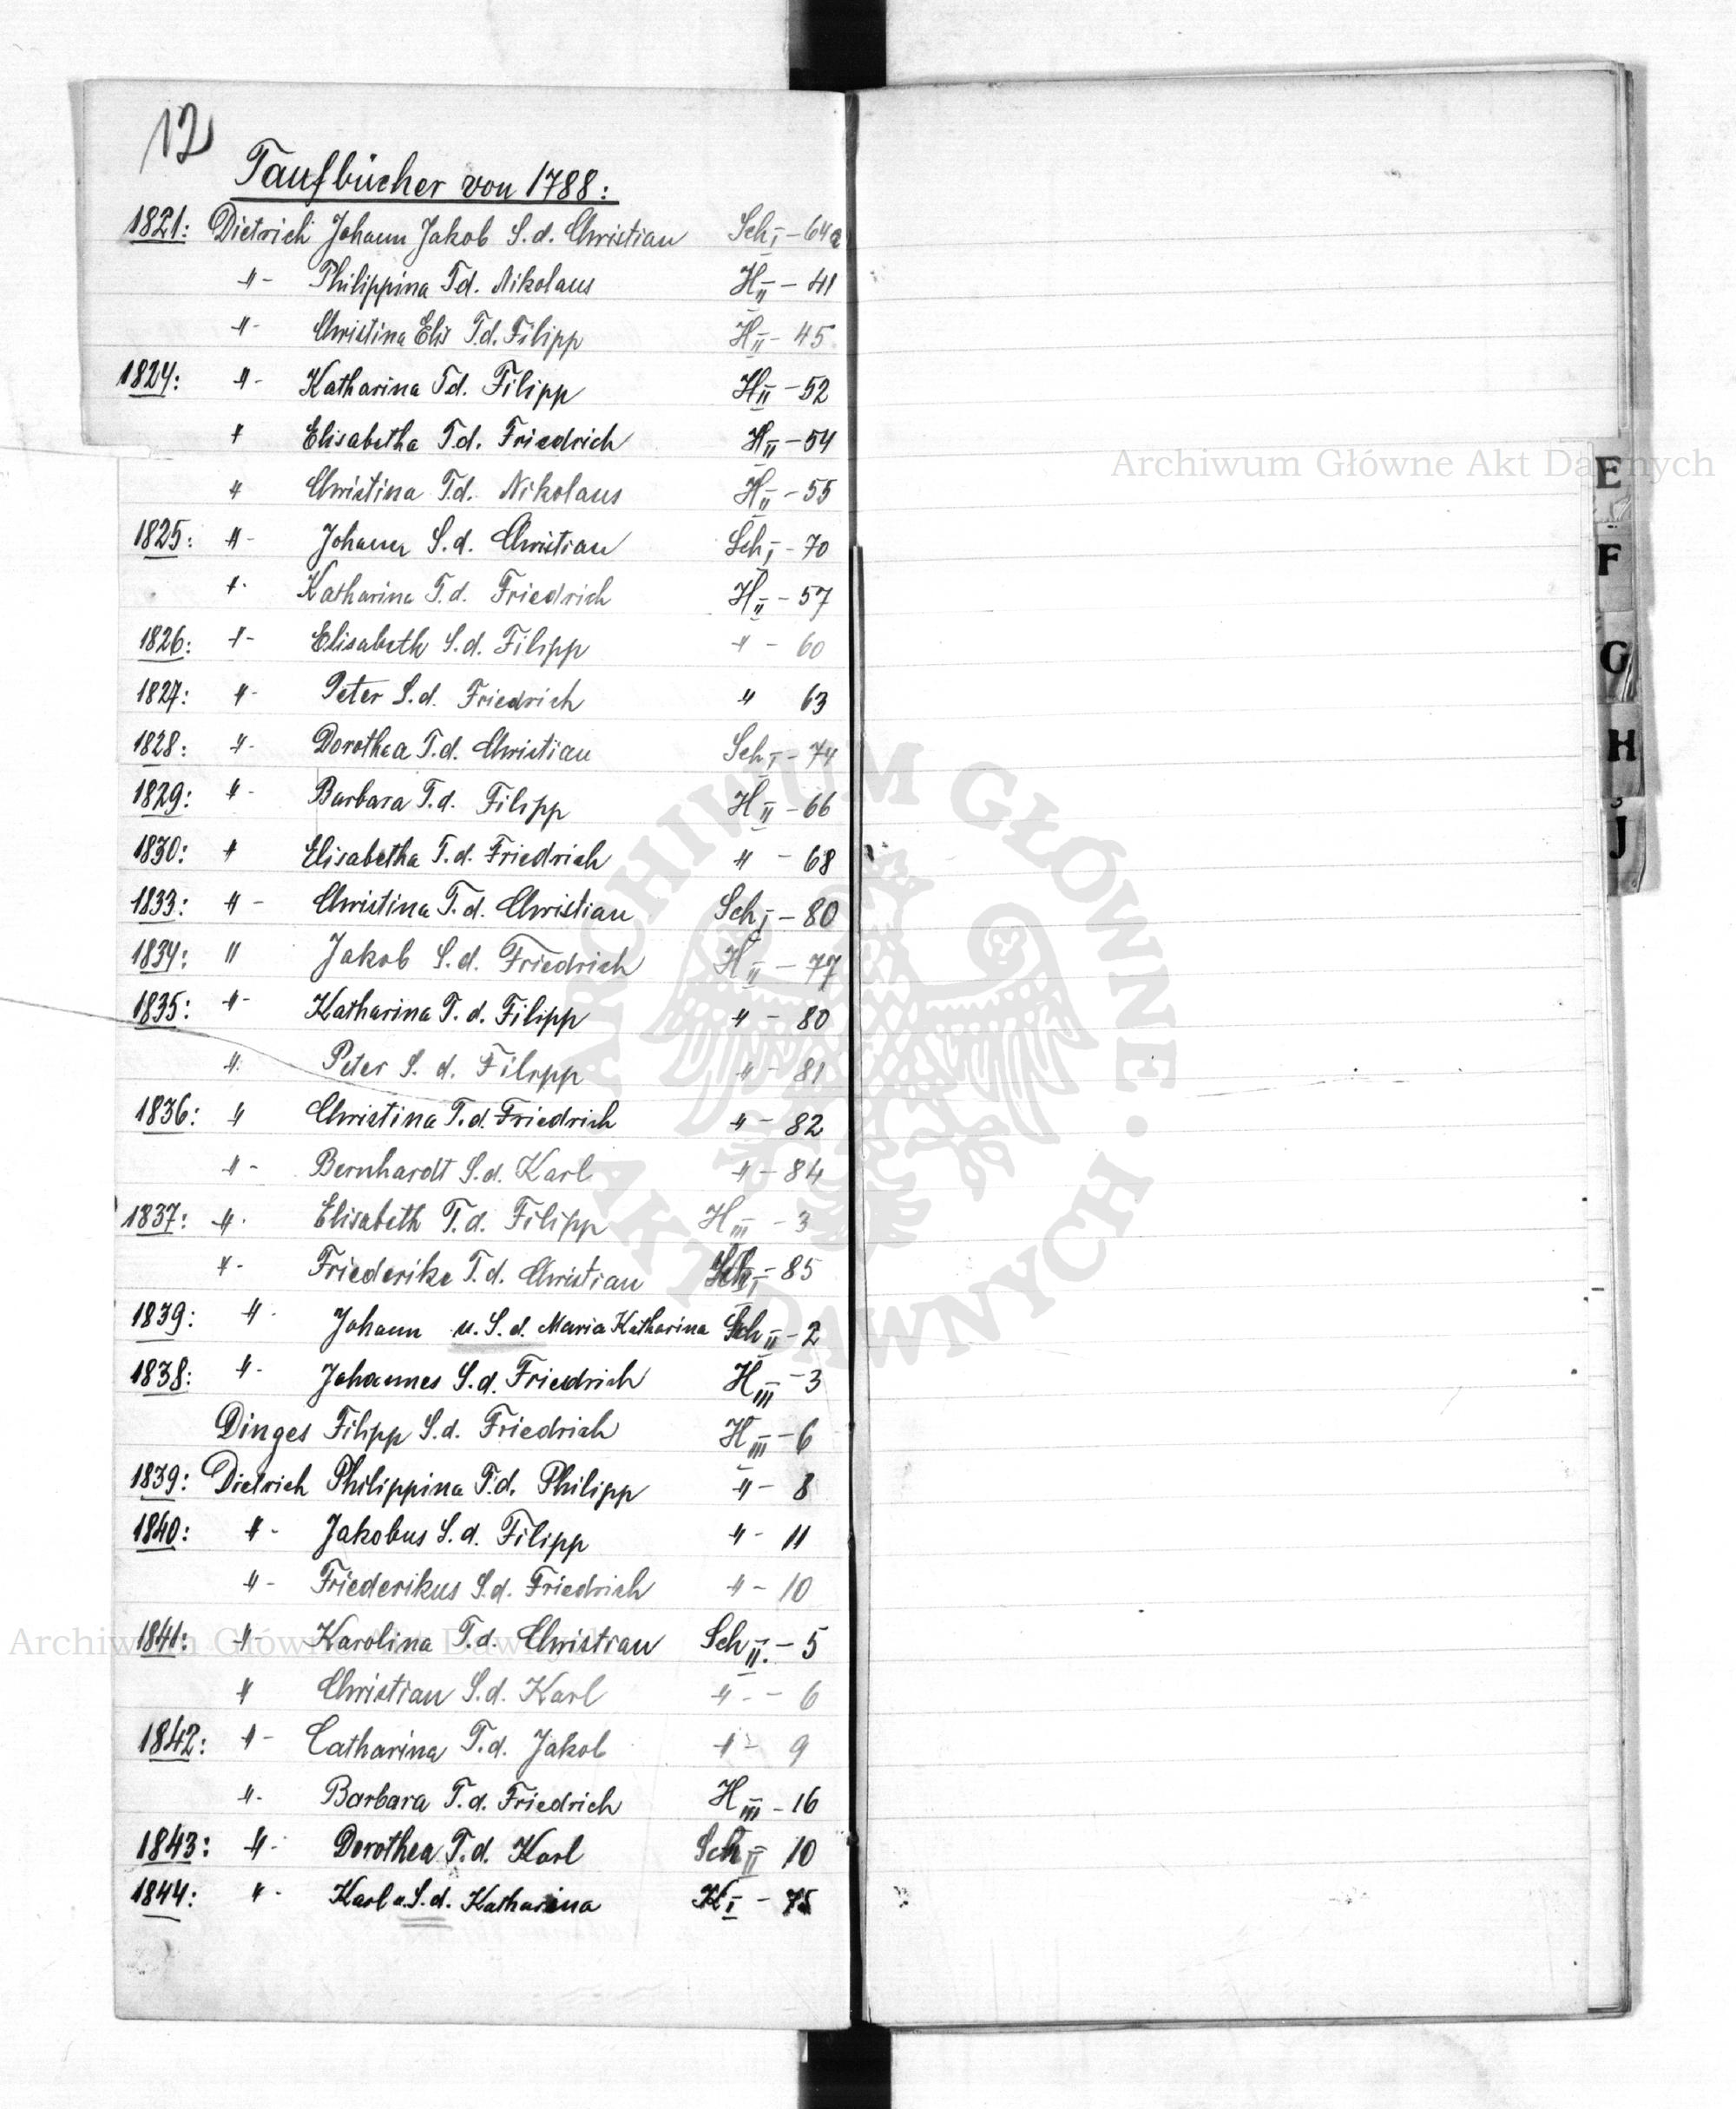 12
Taufbücher von 1788:
1821: Dietrich Johann Jakob S.d. Christian Sch I - 64a
-"- Philippina T.d. Nikolaus H II - 41
-"- Christina Elis T.d. Filipp H II - 45
1824: -"- Katharina T.d. Filipp H II - 52
" Elisabetha T.d. Friedrich H II - 54
" Christina T.d. Nikolaus H II - 55
1825: -"- Johann S.d. Christian Sch I - 70
" Katharina T.d. Friedrich H II - 57
1826: -"- Elisabeth S.d. Filipp " - 60
1827: -"- Peter S.d. Friedrich " 63
1828: -"- Dorothea T.d. Christian Sch I - 74
1829: -"- Barbara T.d. Filipp H II - 66
1830: " Elisabetha T.d. Friedrich " - 68
1833: -"- Christina T.d. Christian Sch I - 80
1834: " Jakob S.d. Friedrich H II - 77
1835: -"- Katharina T.d. Filipp " - 80
" Peter S.d. Filipp " - 81
1836: " Christina T.d. Friedrich " - 82
-"- Bernhardt S.d. Karl " - 84
1837: -"- Elisabeth T.d. Filipp H III - 3
-"- Friederike T.d. Christian Sch I - 85
1839: -"- Johann u.S.d. Maria Katharina Sch II - 2
1838: -"- Johannes S.d. Friedrich H III - 3
Dinges Filipp S.d. Friedrich H III - 6
1839: Dietrich Philippina T.d. Philipp " - 8
1840: -"- Jakobus S.d. Filipp " - 11
-"- Friederikus S.d. Friedrich " - 10
1841: -"- Karolina T.d. Christian Sch II. - 5
" Christian S.d. Karl " - 6
1842: -"- Catharina T.d. Jakob " - 9
-"- Barbara T.d. Friedrich H III - 16
1843: -"- Dorothea T.d. Karl Sch II 10
1844: -"- Karl u.S.d. Katharina K I - 75
E
F
G
H
J
Archiwum Główne Akt Dawnych
Archiwum Główne Akt Dawnych
ARCHIWUM GŁÓWNE · AKT DAWNYCH ·